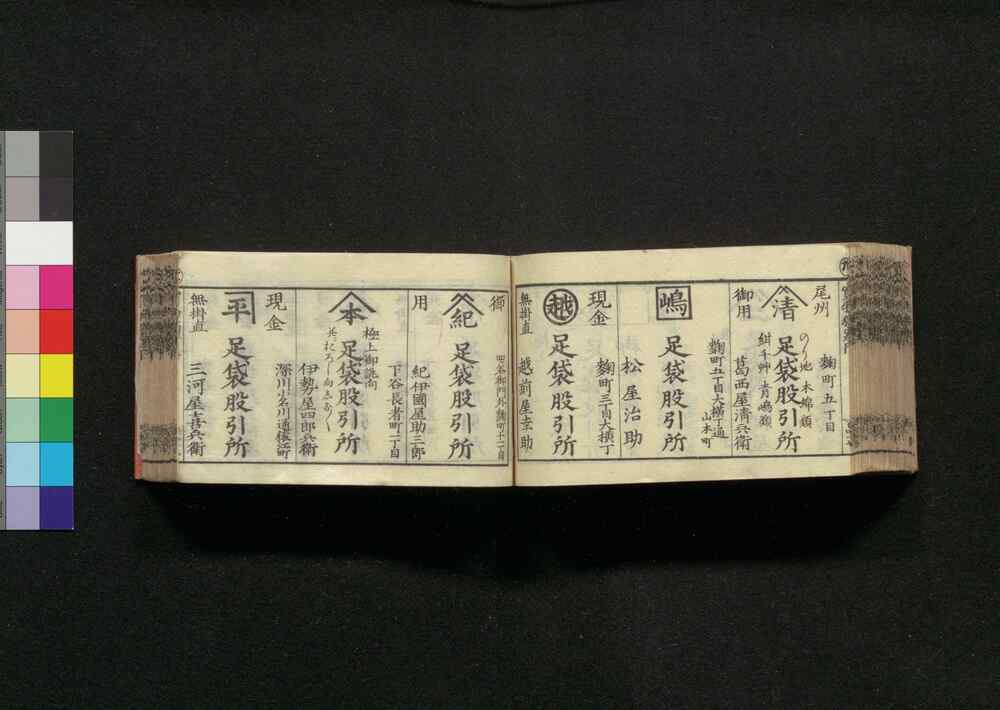 尾州
麹町五丁目
清
足袋股引所
のり地 木綿類
紺千艸 青嶋類
御用
葛西屋清兵衛
嶋
足袋股引所
麹町五丁目大横丁通
山本町
松屋治助
現金
麹町三丁目大横丁
越
足袋股引所
無掛直
越前屋幸助
御
四谷御門外麹町十一丁目
紀
足袋股引所
用
紀伊國屋助三郎
下谷長者町二丁目
極上御誂向
本
足袋股引所
伊勢屋四郎兵衛
現金
深川小名川通猿江町
平
足袋股引所
無掛直
三河屋喜兵衛